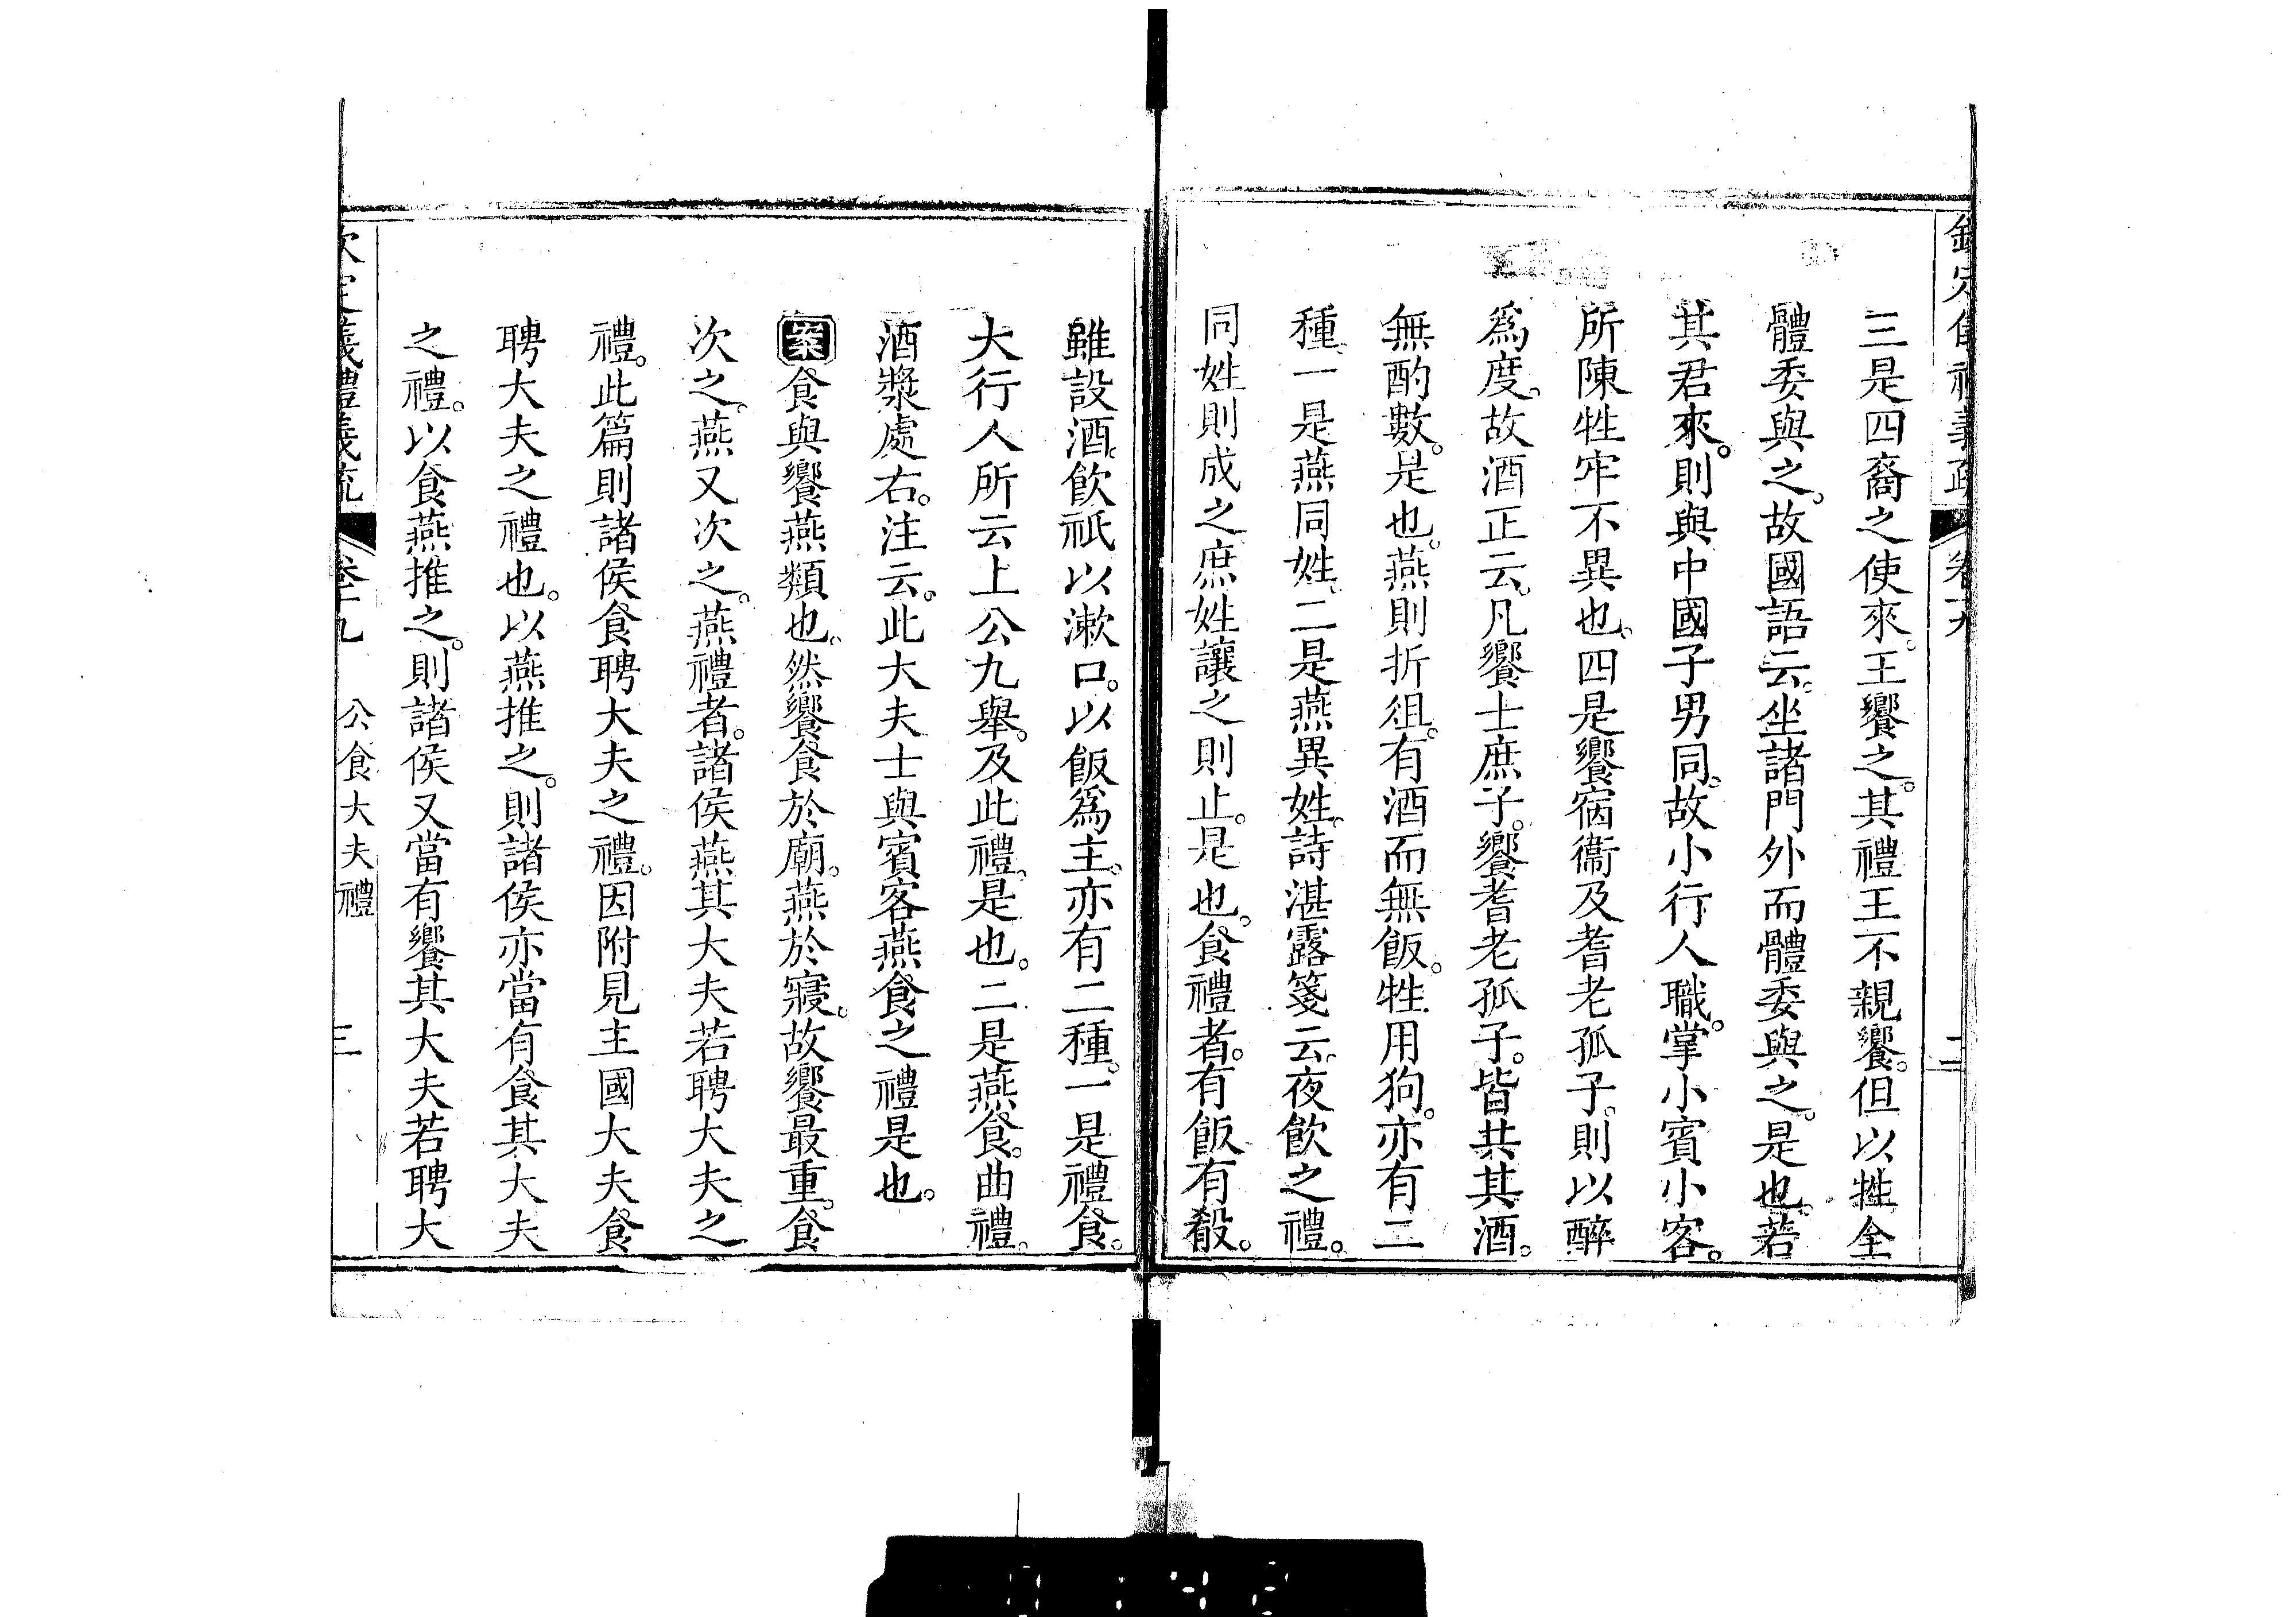 三是四裔之使來。王饗之。其禮王不親饗。但以牲全
體委與之。故國語云。坐諸門外而體委與之。是也。若
其君來。則與中國子男同。故小行人職。掌小賓小客。
所陳牲牢不異也。四是饗宿衞及耆老孤子。則以醉
爲度。故酒正云。凡饗士庶子。饗耆老孤子。皆共其酒。
無酌數。是也。燕則折俎。有酒而無飯。牲用狗。亦有二
種。一是燕同姓。二是燕異姓。詩湛露箋云。夜飮之禮。
同姓則成之庶姓讓之則止。是也。食禮者。有飯有殽。
雖設酒。飮祇以漱口。以飯爲主。亦有二種。一是禮食。
大行人所云上公九舉。及此禮。是也。二是燕食。曲禮。
酒漿處右。注云。此大夫士與賓客燕食之禮是也。
案食與饗燕類也。然饗食於廟。燕於寢。故饗最重。食
次之。燕又次之。燕禮者。諸侯燕其大夫若聘大夫之
禮。此篇則諸侯食聘大夫之禮。因附見主國大夫食
聘大夫之禮也。以燕推之。則諸侯亦當有食其大夫
之禮。以食燕推之。則諸侯又當有饗其大夫若聘大
欽定儀禮義疏 卷十九 公食大夫禮 三